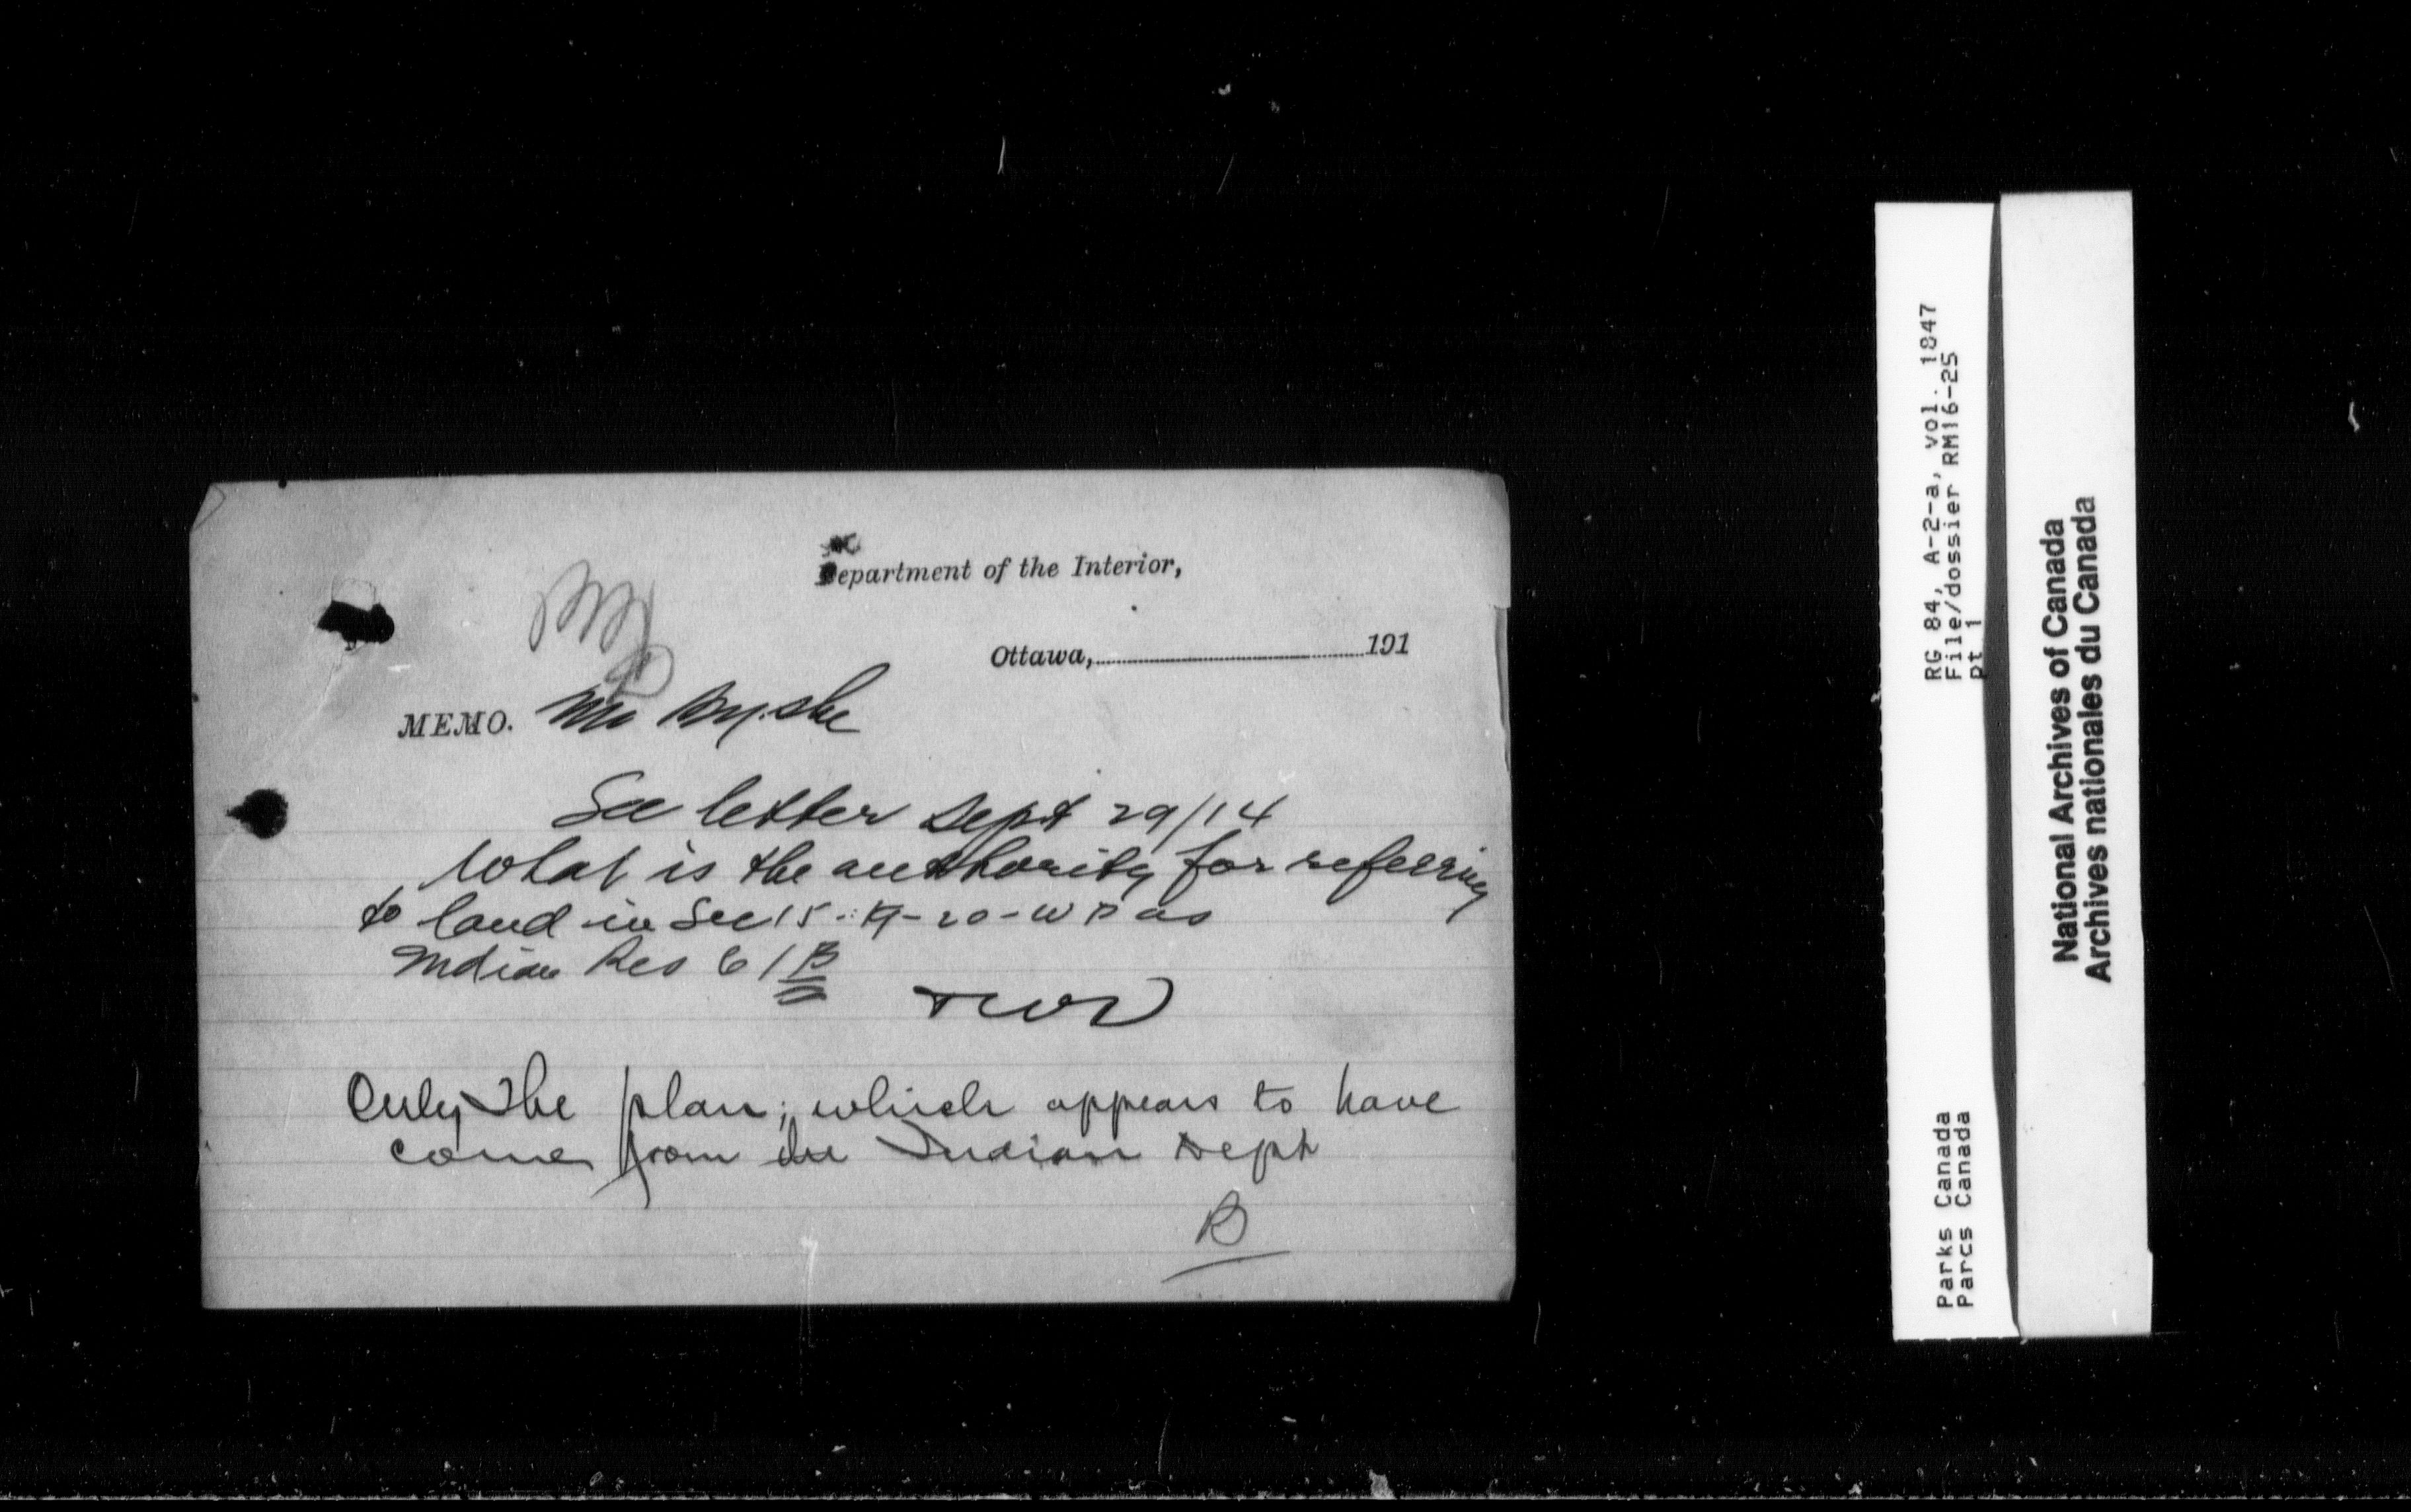 Department of the Interior,
Ottawa, 191
MEMO. Mr Byshe
See letter Sept 29/14
What is the authority for referring
to land in Sec 15-19-20-W P as
Indian Res 61B
Only the plan, which appears to have
come from the Indian Dept
B
RG 84, A-2-a, vol. 1847
File/dossier RM16-25
pt 1
Parks Canada
Parcs Canada
National Archives of Canada
Archives nationales du Canada